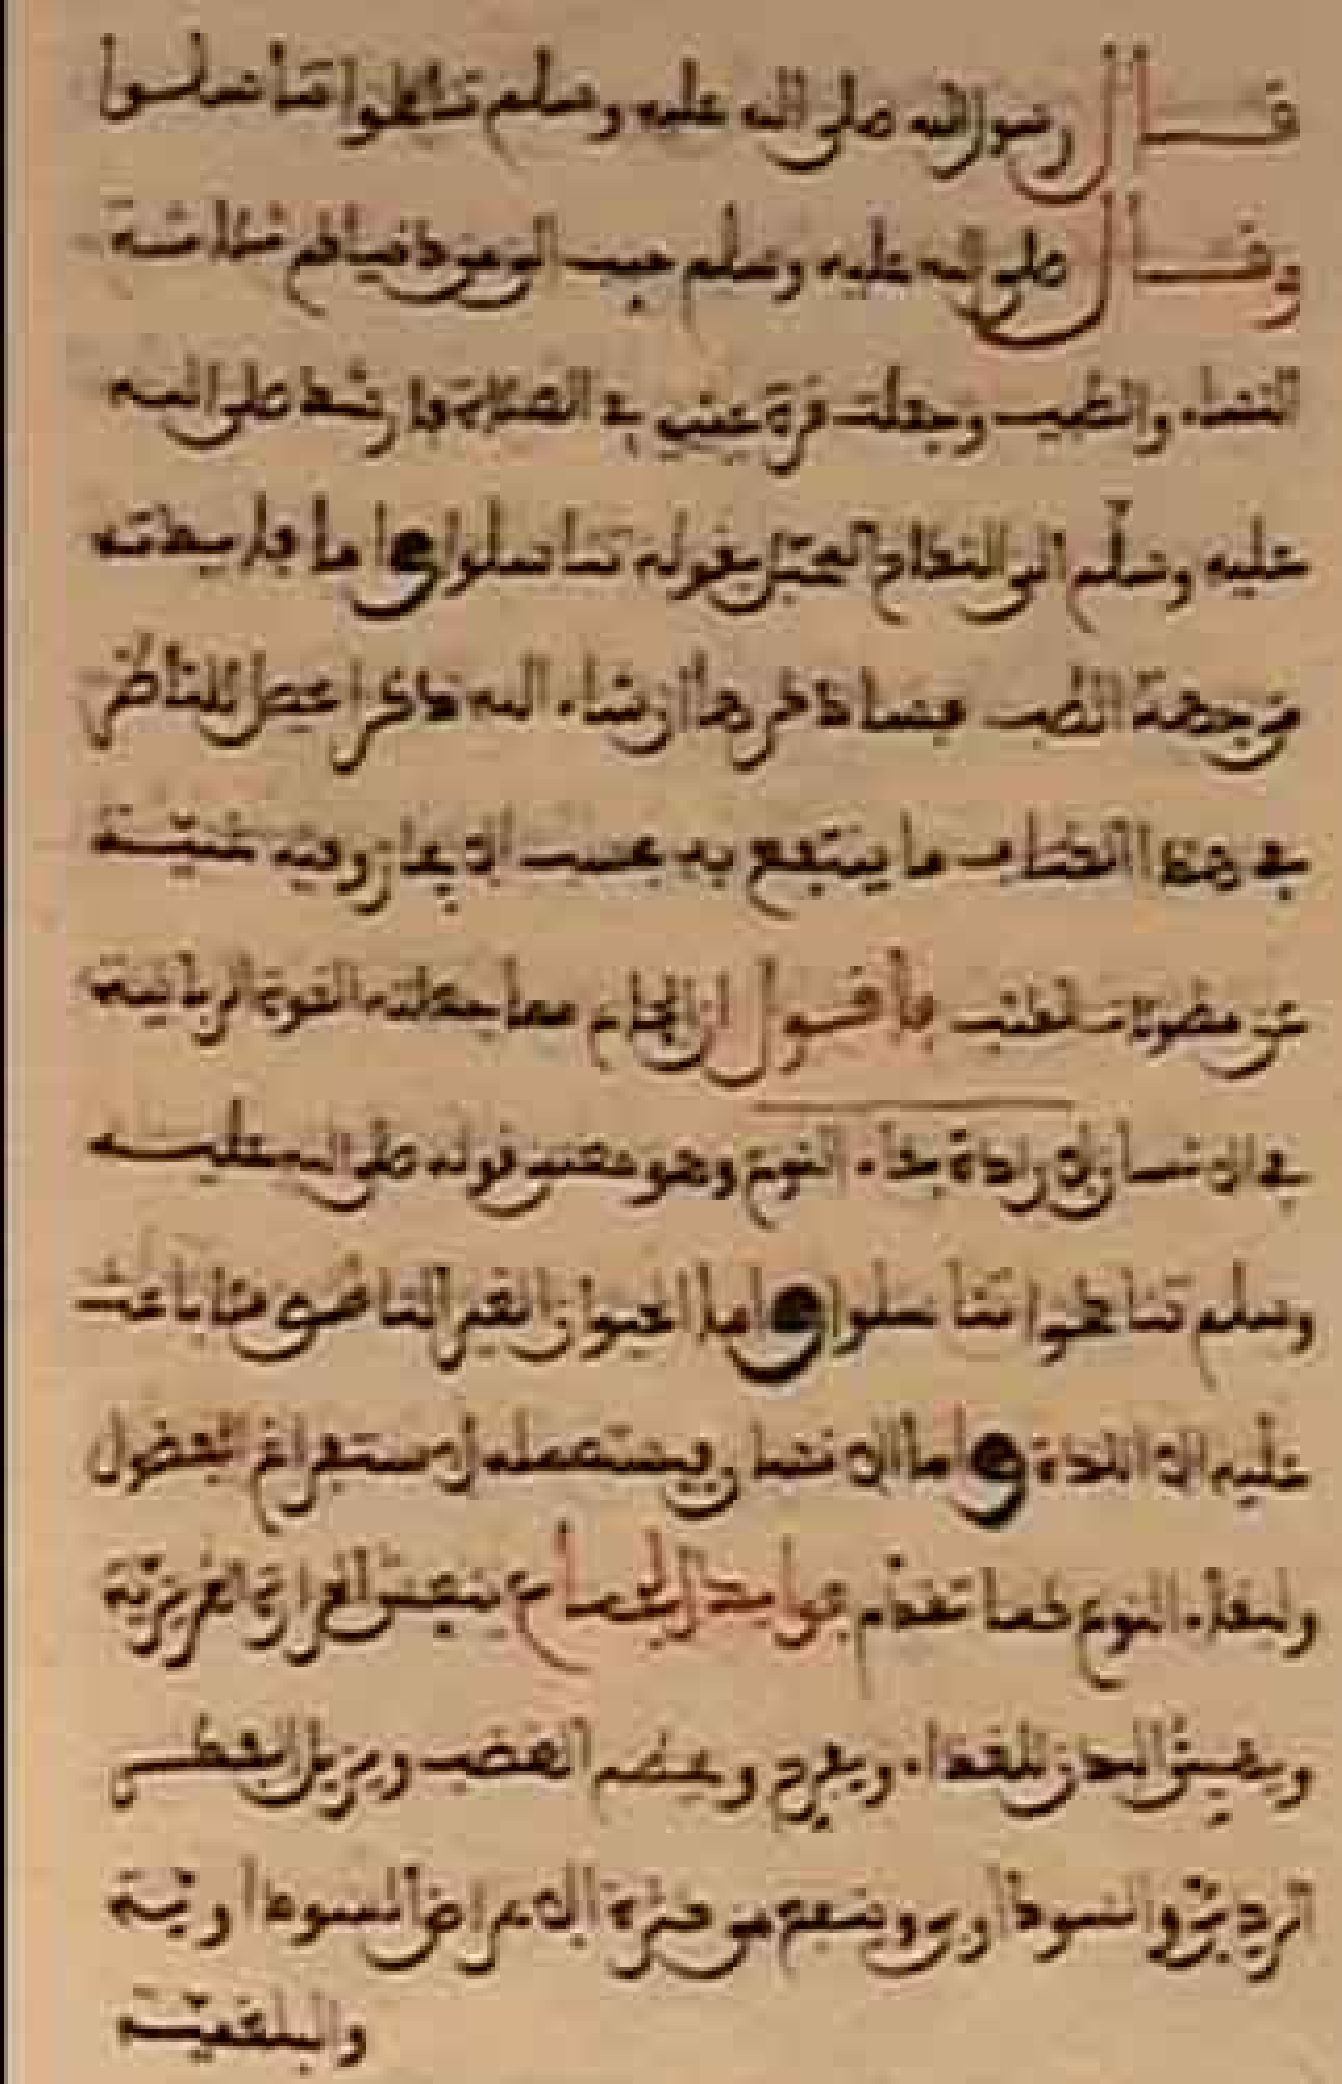 قال رسول الله صلى الله عليه وسلم تناكحوا تناسلوا
وقال صلى الله عليه وسلم حبب الي من دنياكم ثلاثة
النساء والطيب وجعلت قرة عيني في الصلاة فارشد صلى الله
عليه وسلم الى النكاح المحبل بقوله تناسلوا واما فاريطته
من جهة الطب فساذكرها ان شاء الله ذكرا يحصل للناظر
في هذا الكتاب ما ينتفع به بحسب الايجاز وفيه غنية
عن مطولات الطب فاقول ان الجماع مما جعلته القوة الربانية
في الانسان لارادة بقاء النوع وهو معنى قوله صلى الله عليه
وسلم تناكحوا تناسلوا واما الحيوان الغير الناطق فلا باعث
عليه الا اللذة واما الانسان فيستعمله لاستفراغ الفضول
ولبقاء النوع كما تقدم فوايد الجماع ينعش الحرارة الغريزية
ويهيئ البدن للغذاء ويفرح ويحطم الغضب ويزيل الفكر
الردي والسوداوي وينفع من كثرة الامراض السوداوية
والبلغمية